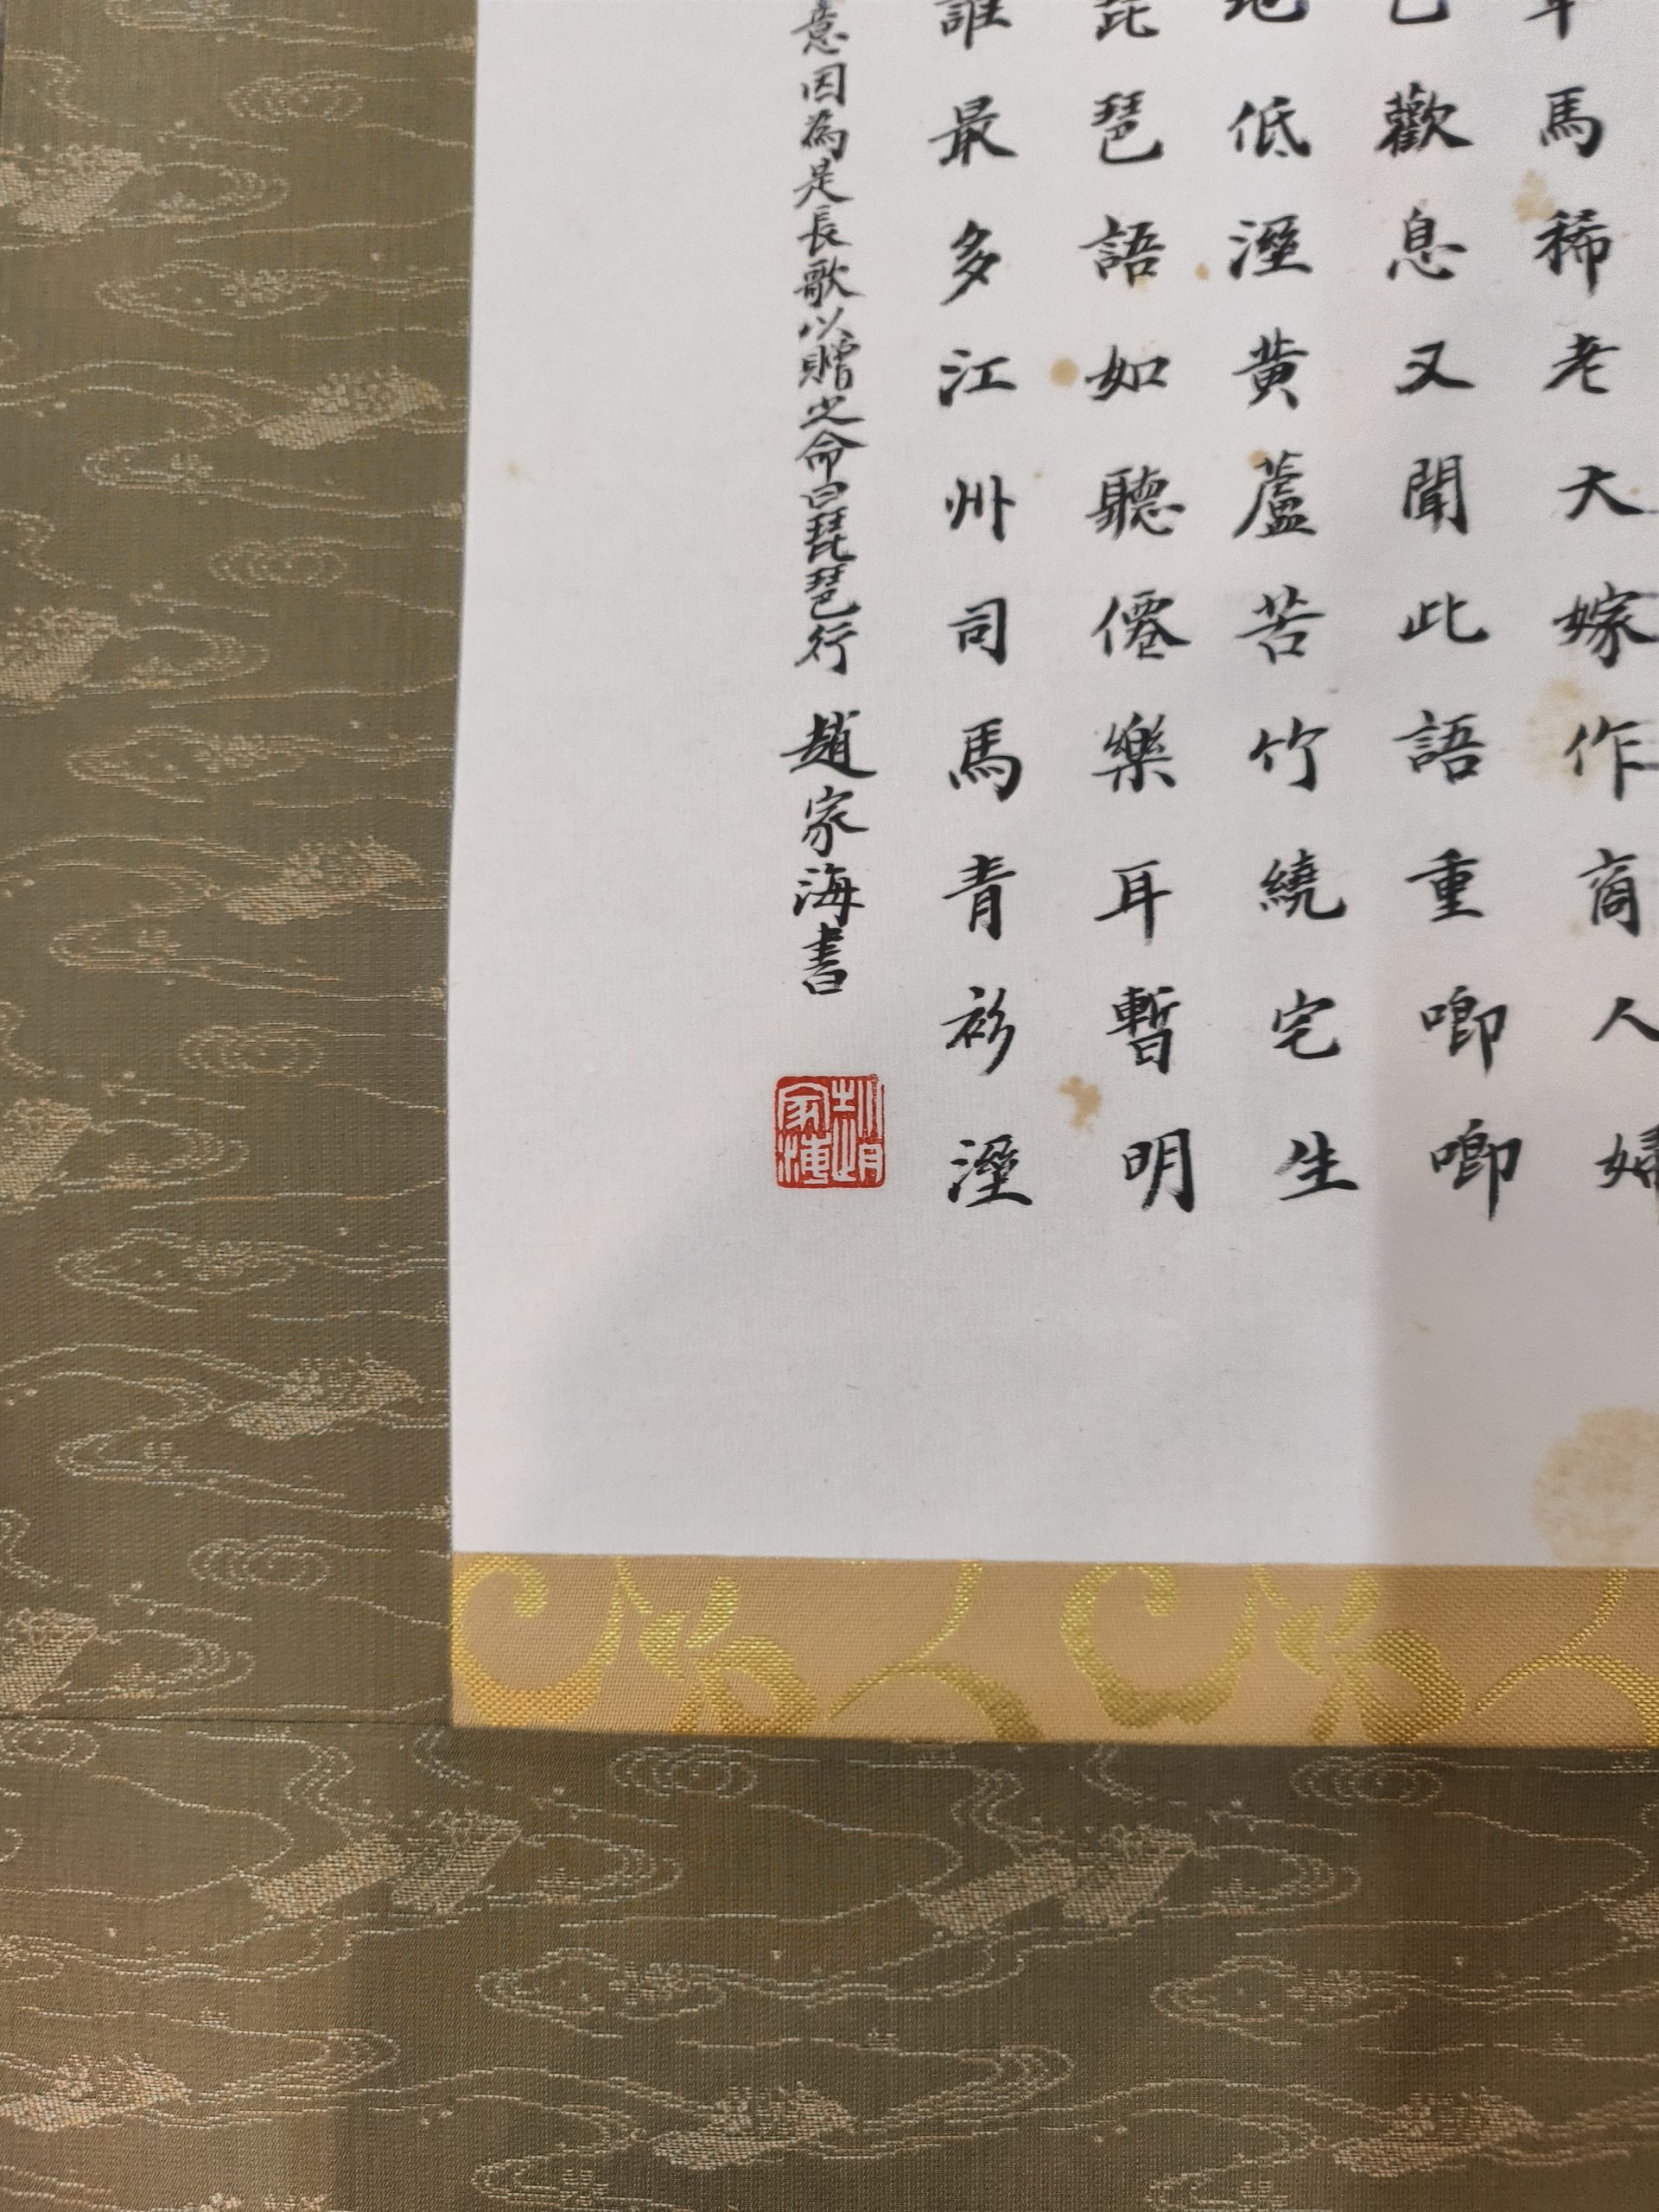 馬稀老大嫁作商人婦
歎息又聞此語重唧唧
低溼黃蘆苦竹繞宅生
琶語如聽僊樂耳暫明
誰最多江州司馬青衫溼
意因為是長歌以贈之命曰琵琶行 趙家海書
趙家海